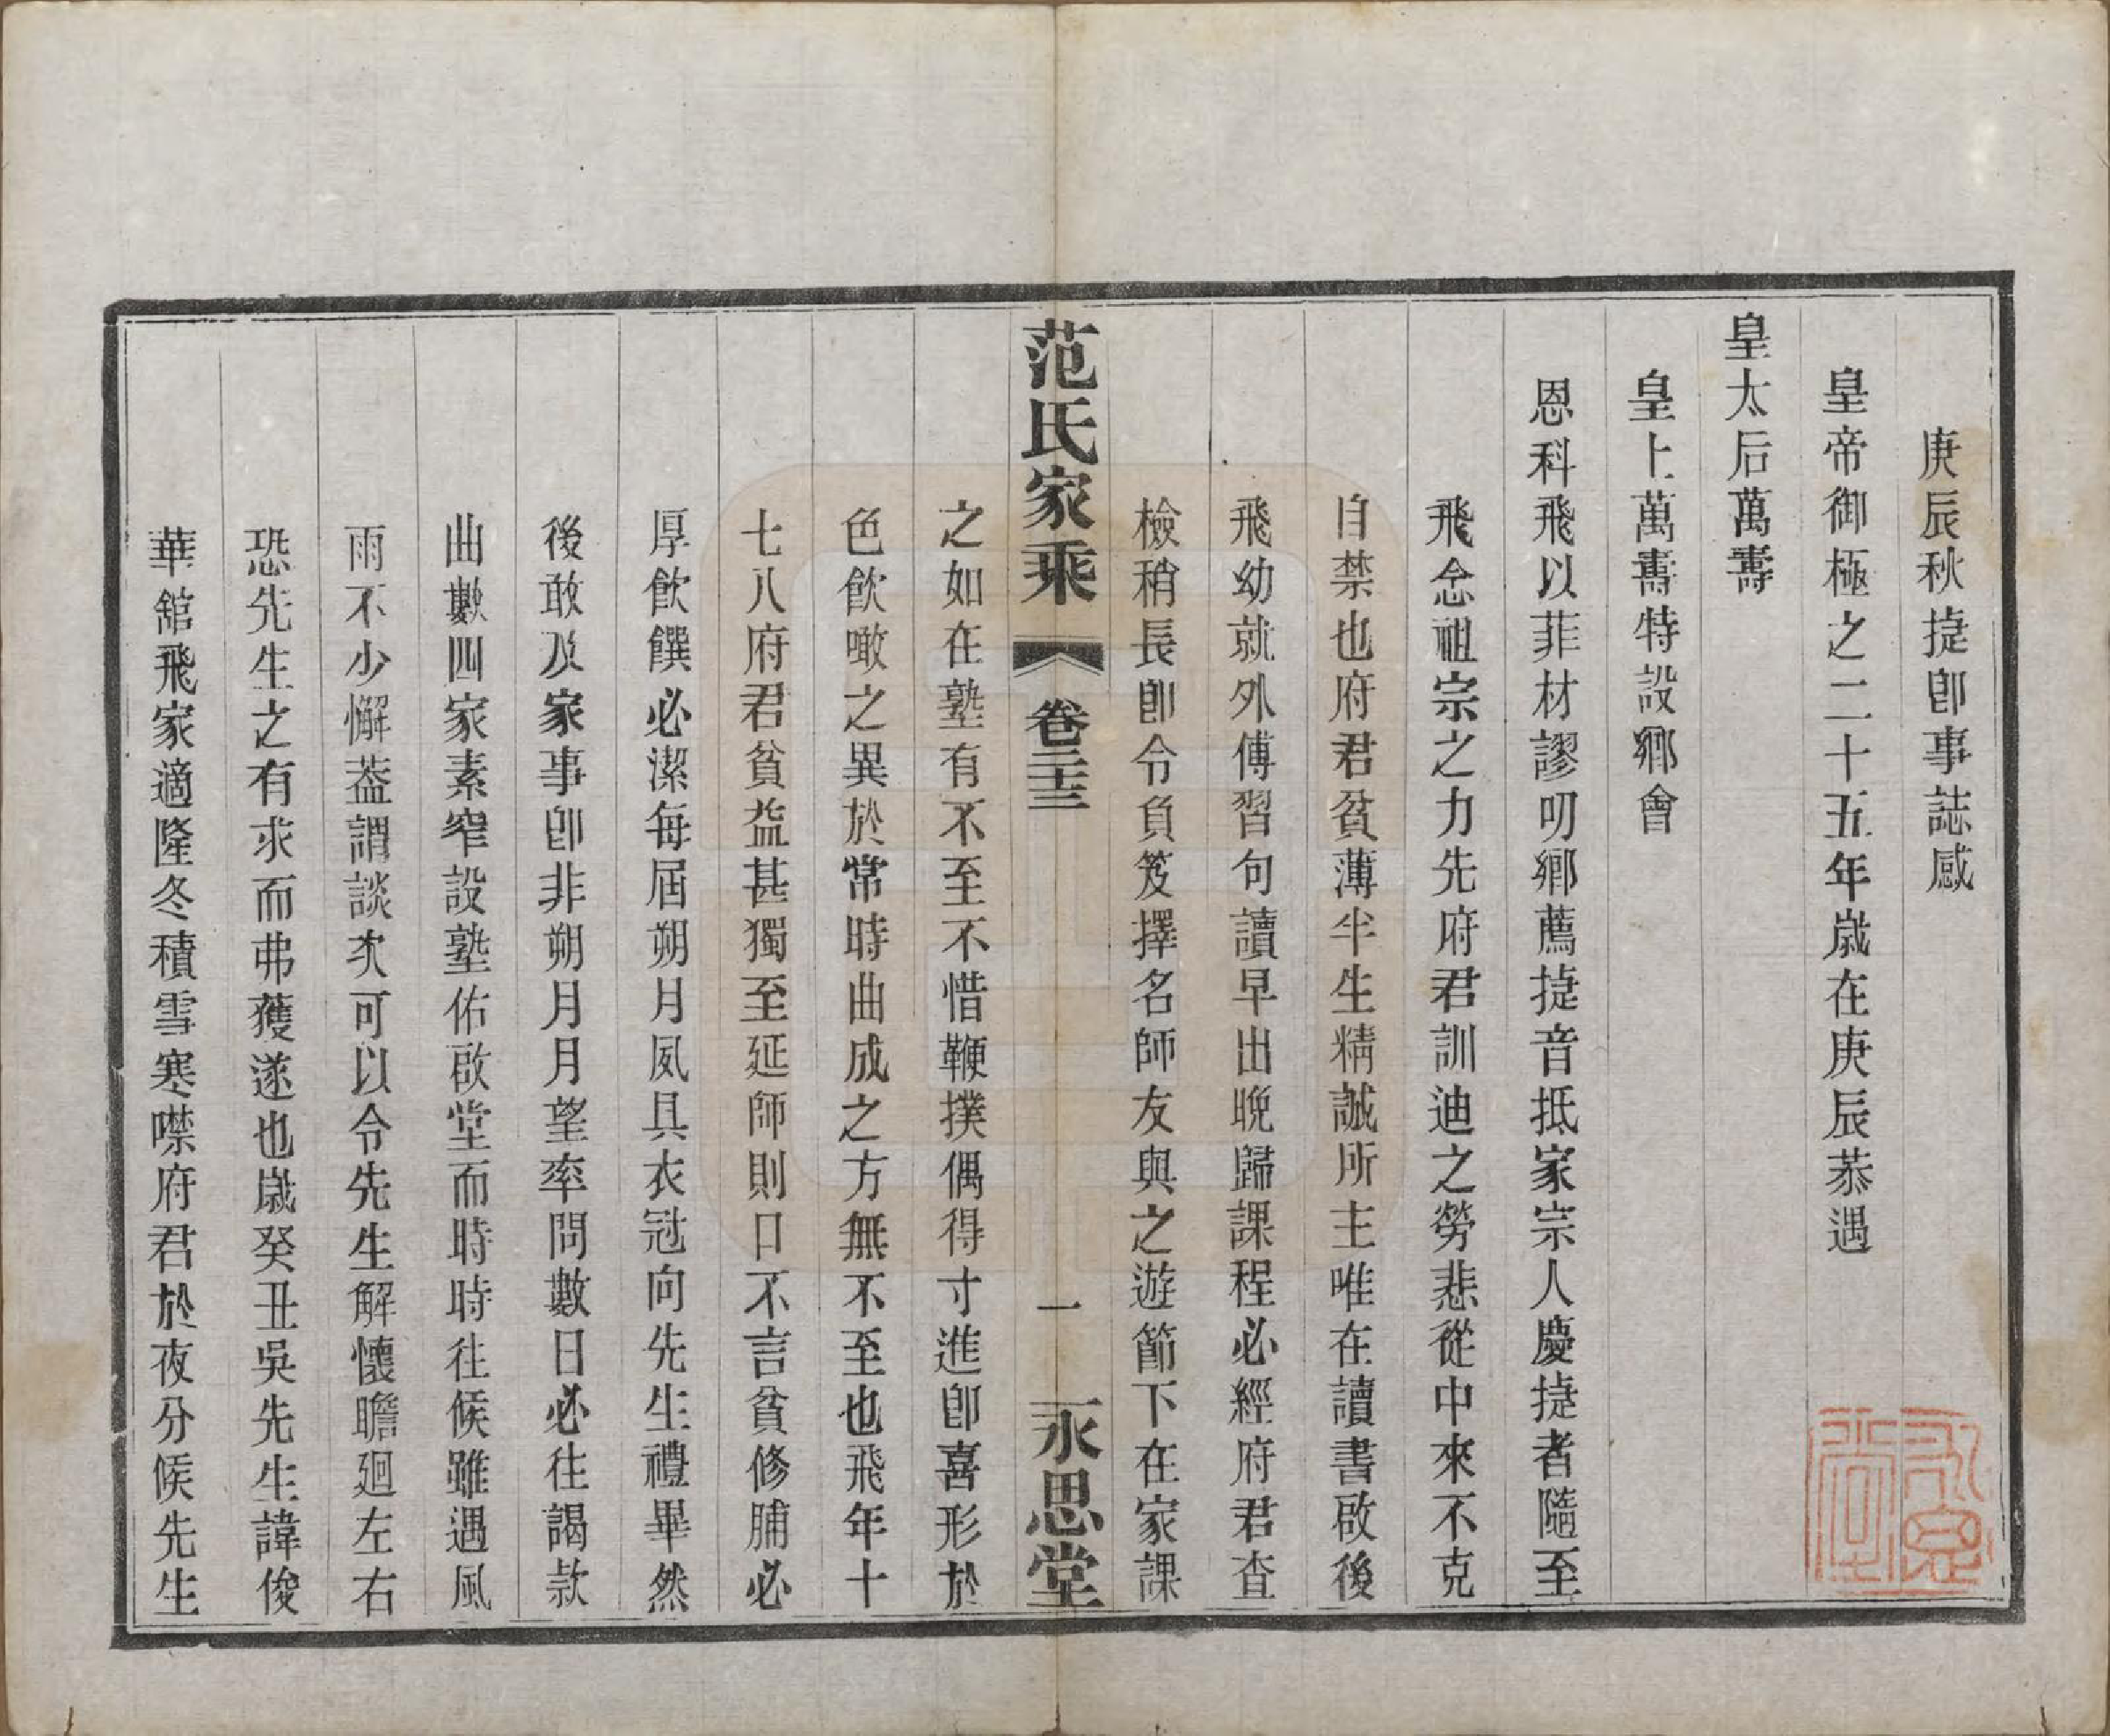 庚辰秋捷卽事誌感
皇帝御極之二十五年歲在庚辰恭遇
皇太后萬壽
皇上萬壽特設鄉會
恩科飛以菲材謬叨鄉薦捷音抵家宗人慶捷者隨至
飛念祖宗之力先府君訓迪之勞悲從中來不克
自禁也府君貧薄半生精誠所主唯在讀書啟後
飛幼就外傅習句讀早出晩歸課程必經府君查
檢稍長卽令負笈擇名師友與之遊節下在家課
范氏家乘
卷二十三
一
永思堂
之如在塾有不至不惜鞭撲偶得寸進卽喜形於
色飮噉之異於常時曲成之方無不至也飛年十
七八府君貧益甚獨至延師則口不言貧修脯必
厚飮饌必潔每屆朔月夙具衣冠向先生禮畢然
後敢及家事卽非朔月月望率問數日必往謁款
曲數四家素窄設塾佑啟堂而時時往候雖遇風
雨不少懈葢謂談次可以令先生解懷瞻廻左右
恐先生之有求而弗獲遂也歲癸丑吳先生諱俊
華舘飛家適隆冬積雪寒噤府君於夜分候先生